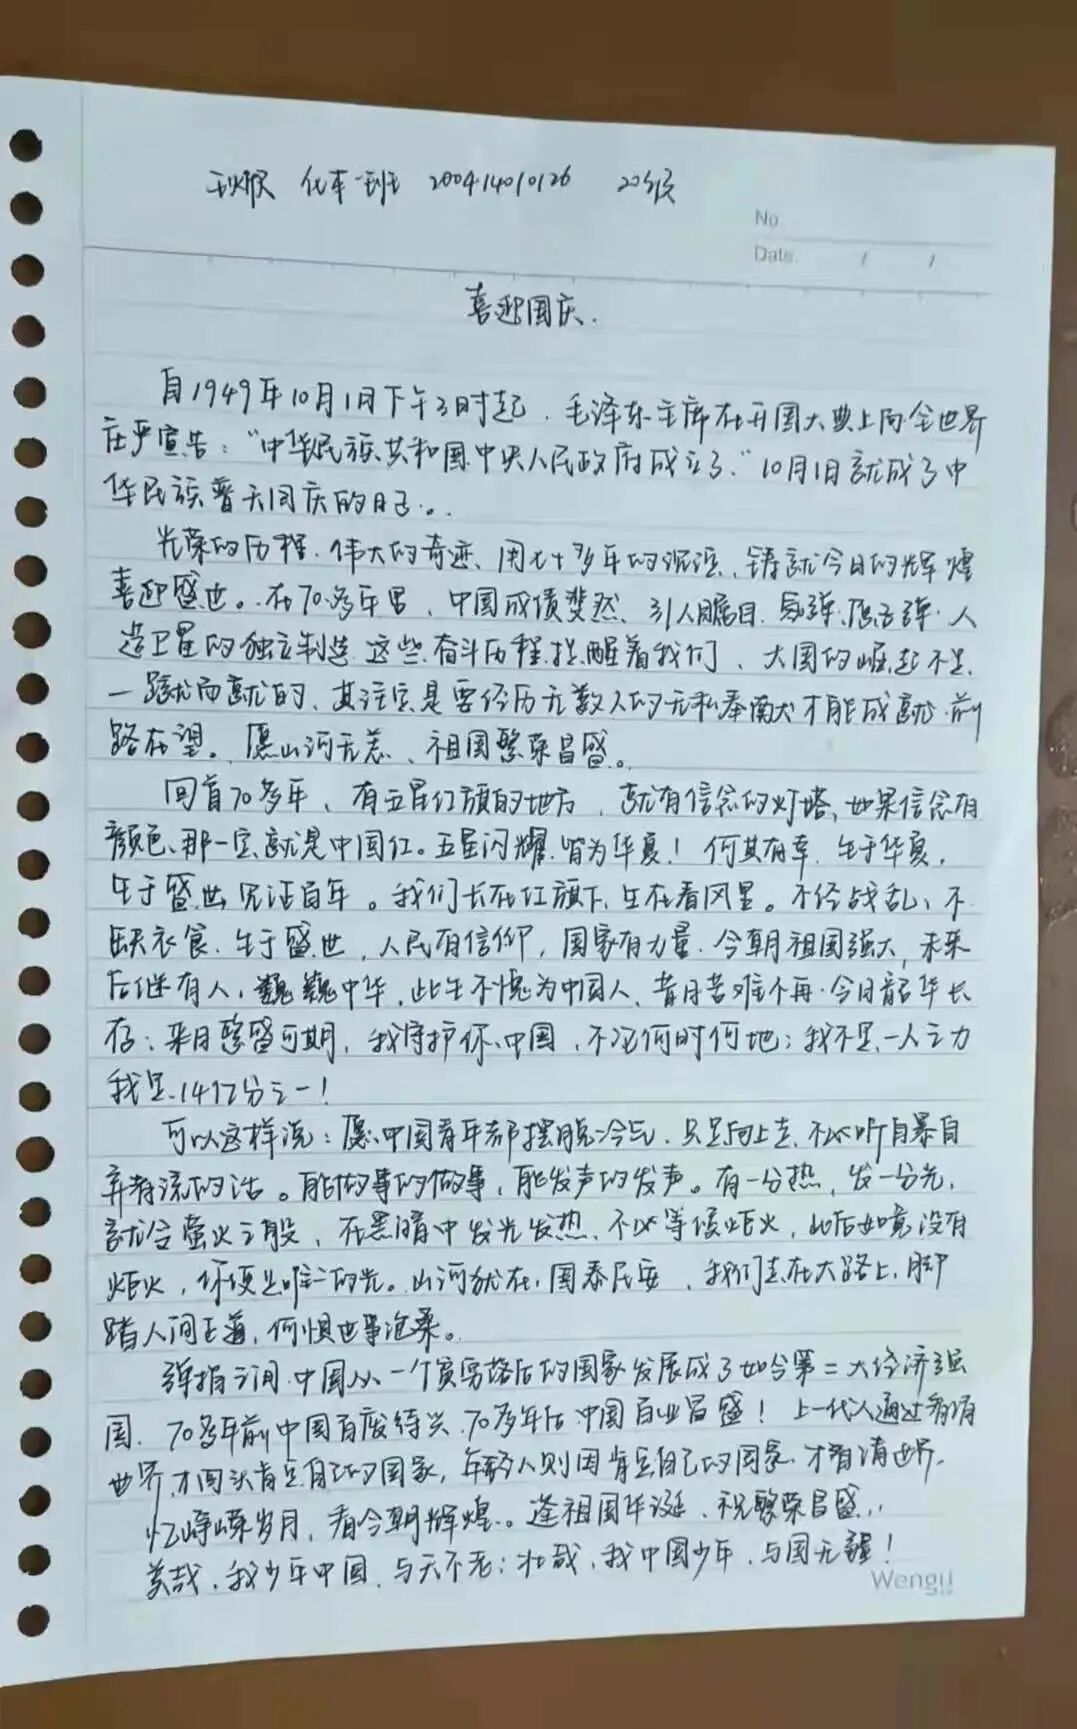 化车一班 2004140126 20级
No
Date. / /
喜迎国庆.
自1949年10月1日下午3时起，毛泽东主席在开国大典上向全世界
庄严宣告："中华民族共和国中央人民政府成立了."10月1日就成了中
华民族普天同庆的日子..
光荣的历程，伟大的奇迹、用七十多年的沉淀，铸就今日的辉煌
喜迎盛世。在70多年里，中国成绩斐然、引人瞩目.氢弹、原子弹.人
造卫星的独立制造.这些奋斗历程提醒着我们、大国的崛起不是
一蹴而就的、其注定是要经历无数人的无私奉献才能成就.前
路在望。愿山河无恙、祖国繁荣昌盛。
回首70多年，有五星红旗的地方，就有信念的灯塔，如果信念有
颜色、那一定就是中国红。五星闪耀.皆为华夏！何其有幸，生于华夏，
生于盛世见证百年。我们长在红旗下，生在春风里。不经战乱、不
缺衣食.生于盛世，人民有信仰，国家有力量.今朝祖国强大，未来
后继有人，巍巍中华，此生不愧为中国人，昔日苦难不再.今日韶华长
存；来日繁盛可期，我守护你、中国，不论何时何地；我不是一人之力
我是14亿分之一！
可以这样说：愿中国青年都摆脱冷气，只是向上走，不必听自暴自
弃者流的话。能做事的做事，能发声的发声。有一分热，发一分光，
就令萤火之般，在黑暗中发光发热、不必等候炬火，此后如竟没有
炬火，你便是唯一的光。山河犹在，国泰民安，我们走在大路上，脚
踏人间正道，何惧世事沧桑。
弹指之间.中国从一个贫穷落后的国家发展成了如今第二大经济强
国.70多年前中国百废待兴.70多年后中国百业昌盛！上一代人通过看清
世界才回头肯定自己的国家，年轻人则因肯定自己的国家.才看清世界.
忆峥嵘岁月，看今朝辉煌。逢祖国华诞，祝繁荣昌盛，
美哉，我少年中国，与天不老；壮哉，我中国少年，与国无疆！
Wengu